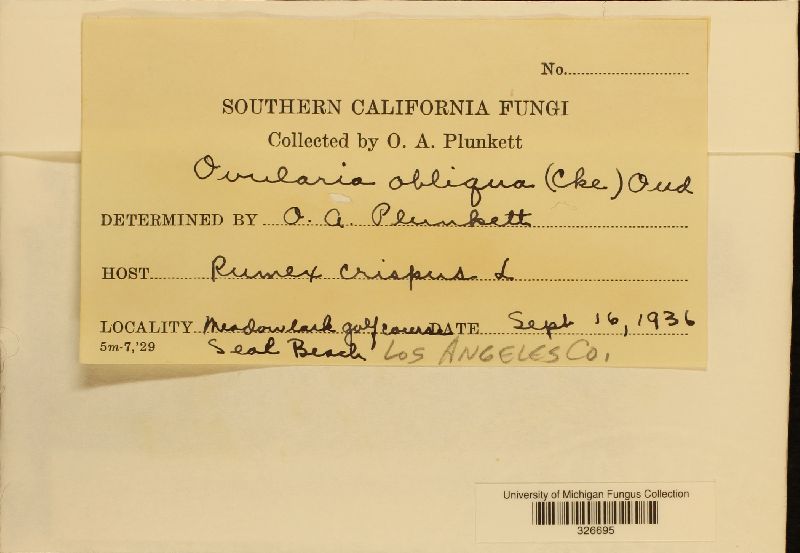 No.
SOUTHERN CALIFORNIA FUNGI
Collected by O. A. Plunkett
Ovularia obliqua (Cke) Oud
DETERMINED BY O. A. Plunkett
HOST Rumex crispus L
LOCALITY Meadowlark golf course DATE Sept 16, 1936
5m-7,'29 Seal Beach Los Angeles Co.
University of Michigan Fungus Collection
326695